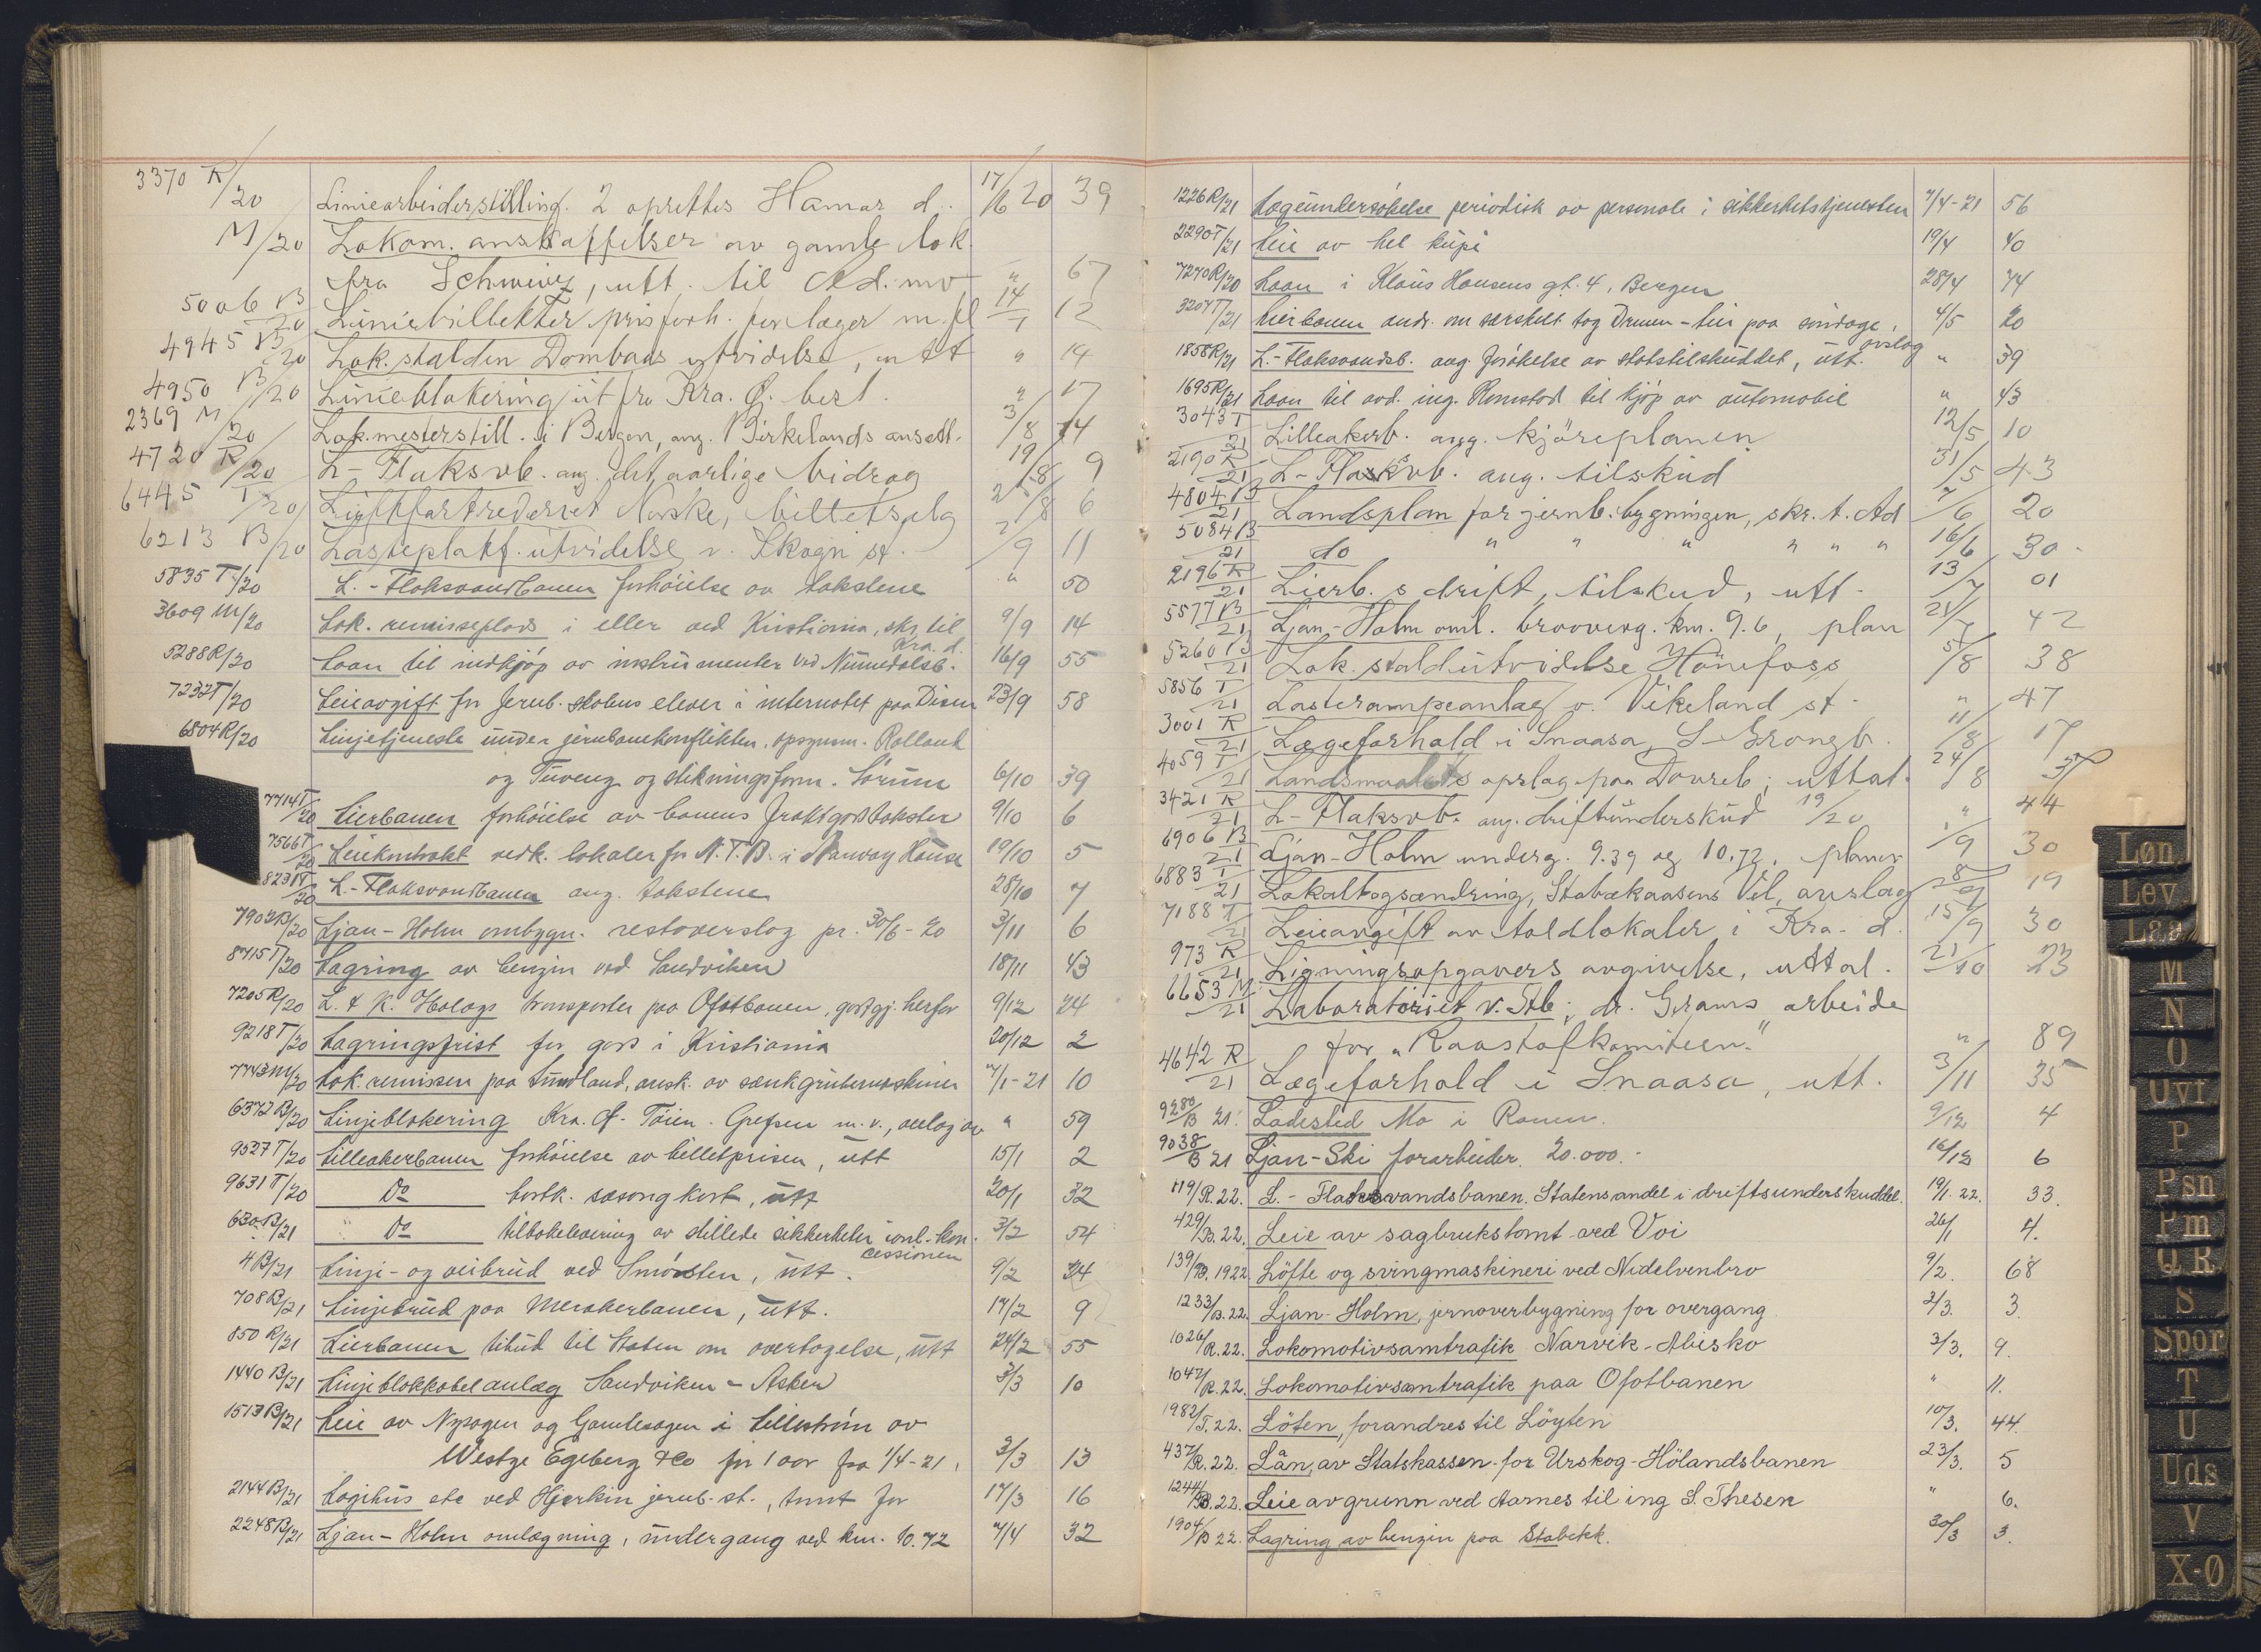 3370 R/20 Liniearbeiderstilling. 2 oprettes Hamar d. 17/6 20 39
M/20 Lokom. anskaffelser av gamle lok.
fra Schweiz, utt. til Ad. " 67
5006 B/20 Liniebilletter prisforh. for læger m. fl 14/7 12
4945 B/20 Lok. stalden Dombaas utvidelse, utt " 14
4950 B/20 Linieblokering ut fra Kra. Ø. best. " 17
2369 M/20 Lok.mesterstill. i Bergen, ang. Birkelands ansætt. 3/8 14
4720 R/20 L-Flaksvb. ang. det aarlige bidrag 19/8 9
6445 T/20 Luftfartrederiet Norske, billetsalg 25/8 6
6213 B/20 Lasteplatf. utvidelse v. Skogn st. 2/9 11
5835 T/20 L.-Flaksvandbanen forhöielse av takstene " 50
3609 M/20 Lok. remisseplads i eller ved Kristiania, skr. til Kra. d. 9/9 14
5288 R/20 Laan til indkjøp av instrumenter ved Numedalsb. 16/9 55
7232 T/20 Leieavgift for Jernb. skolens elever i internatet paa Disen 23/9 58
6804 R/20 Linjetjeneste under jernbanekonflikten, opsynsm. Rolland
og Tuveng og stikningsform. Sörum 6/10 39
7714 T/20 Lierbanen forhöielse av banens fraktgodstakster 9/10 6
7566 T/20 Leiekontrakt vedk. lokaler for N.T.B. i Norway House 19/10 5
8231 T/20 L.-Flaksvandbanen ang. takstene 28/10 7
7902 B/20 Ljan-Holm ombygn. restoverslag pr. 30/6-20 3/11 6
8715 T/20 Lagring av benzin ved Sandviken 18/11 43
7205 R/20 L. & K. Holags transporter paa Ofotbanen, godtgj. herfor 9/12 24
9218 T/20 Lagringsfrist for gods i Kristiania 20/12 2
7743 M/20 Lok. remissen paa Sundland, ansk. av sænkgrubemaskiner 7/1-21 10
6372 B/20 Linjeblokering Kra. Ø. Töien. Grefsen m.v., anlæg av " 59
9527 T/20 Lilleakerbanen forhöielse av billetprisen, utt 15/1 2
9631 T/20 Do bortk. sæsongkort, utt 20/1 32
630 B/21 " Do tilbakelevering av stillede sikkerheter iml. kon- 3/2 54
cessionen
4 B/21 Linje- og veibrud ved Smörsten, utt. 9/2 24
708 B/21 Linjebrud paa Merakerbanen, utt. 17/2 9
850 R/21 Lierbanen tilbud til Staten om overtagelse, utt 24/2 55
1440 B/21 Linjeblokkabelanlæg Sandviken - Asker 3/3 10
1513 B/21 Leie av Nysagen og Gamlesagen i Lilleström av
Westye Egeberg & Co for 1 aar fra 1/4-21. 3/3 13
2144 B/21 Logihus etc ved Hjerkin jernb. st., tomt for 17/3 16
2248 B/21 Ljan-Holm omlægning, undergang ved km. 10.72 7/4 32
1226 R/21 Lægeundersökelse periodisk av personale i sikkerhetstjenesten 7/4-21 56
2290 T/21 Leie av hel kupé 19/4 40
7270 R/20 Laan i Klaus Hansens gt. 4, Bergen 28/4 74
3204 T/21 Lierbanen andr. om særskilt tog Drmen-Lier paa söndage, avslag 4/5 20
1858 R/21 L.-Flaksvandsb. ang. forökelse av statstilskuddet, utt. " 39
1695 R/21 Laan til avd. ing. Romstad til kjøp av automobil " 43
3043 T/21 Lilleakerb. ang. kjöreplanen 12/5 10
2190 R/21 L-Flaksvb. ang. tilskud 31/5 43
4804 B/21 Landsplan for jernb.bygningen, skr. t. Ad 7/6 20
5084 B/21 do " " " " " " 16/6 30
2196 R/21 Lierb.s drift, tilskud, utt. 13/7 01
5577 B/21 Ljan-Holm oml. broøverg. km. 9.6, plan 21/7 42
5260 B/21 Lok. staldutvidelse Hönefoss 5/8 38
5856 T/21 Lasterampeanlæg v. Vikeland st. " 47
3001 R/21 Lægeforhold i Snaasa, S-Grongb. 11/8 17
4059 T/21 Landsmaalets opslag paa Dovreb, uttal. 24/8 37
3421 R/21 L-Flaksvb. ang. driftsunderskud 19/20 " 44
6906 B/21 Ljan-Holm underg. 9.39 og 10.72, planer /9 30
6883 T/21 Lokaltogsændring, Stabækaasens Vel, avslag 8/9 19
7188 T/21 Leieavgift av toldlokaler i Kra. d. 15/9 30
973 R/21 Ligningsopgavers avgivelse, uttal. 21/10 23
6653 M/21 Laboratoriet v. Stb; dr. Grams arbeide
for "Raastofkomiteen" " 89
4642 R/21 Lægeforhold i Snaasa, utt. 3/11 35
9280/B 21. Ladested Mo i Ranen. 9/12 4
9038/B 21 Ljan-Ski forarbeider. 20.000.- 16/12 6
119/R. 22. L.-Flaksvandsbanen. Statens andel i driftsunderskuddet. 19/1. 22. 33.
429/B. 22. Leie av sagbrukstomt ved Voi 26/1 4.
139/B. 1922. Löfte og svingmaskineri ved Nidelvenbro 9/2. 68
1233/B. 22. Ljan-Holm, jernoverbygning for overgang 2/3. 3.
1026/R. 22. Lokomotivsamtrafik Narvik-Abisko 3/3. 9.
1047/R. 22. Lokomotivsamtrafik paa Ofotbanen " 11.
1982/T. 22. Löten, forandres til Löyten 10/3. 44.
437/R. 22. Lån, av Statskassen for Urskog-Hölandsbanen 23/3. 5
1244/B. 22. Leie av grunn ved Aarnes til ing S. Thesen " 6.
1904/B 22. Lagring av benzin paa Stabekk. 30/3 3.
Løn
Lev
Laa
M
N
O
Uvf
P
Psn
Pm
Q R
S
Spor
T
U
Uds
V
X-Ø